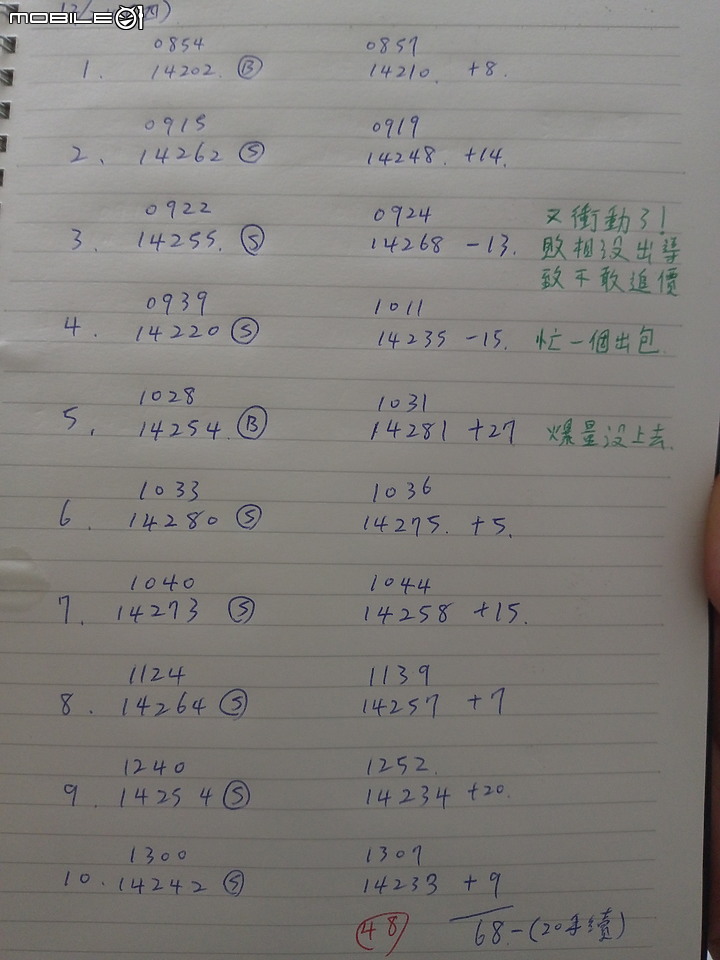 MOBILE01
0854 0857
1. 14202. Ⓑ 14210. +8.
0915 0919
2. 14262 Ⓢ 14248. +14.
0922 0924 又衝動了!
3. 14255. Ⓢ 14268 -13. 敗相沒出導
致不敢進價
0939 1011
4. 14220 Ⓢ 14235 -15. 忙一個出包.
1028 1031
5. 14254. Ⓑ 14281 +27 爆量沒上去.
1033 1036
6. 14280 Ⓢ 14275. +5.
1040 1044
7. 14273 Ⓢ 14258 +15.
1124 1139
8. 14264 Ⓢ 14257 +7
1240 1252.
9. 14254 Ⓢ 14234 +20.
1300 1307
10. 14242 Ⓢ 14233 +9
48 68-(20手續)